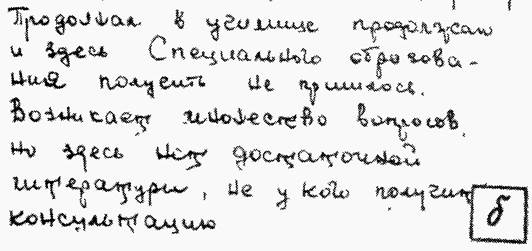 Продолжал в училище продолжаю
и здесь Специального образова-
ния получить не пришлось.
Возникает множество вопросов,
но здесь нет достаточной
литературы, не у кого получить
консультацию
б